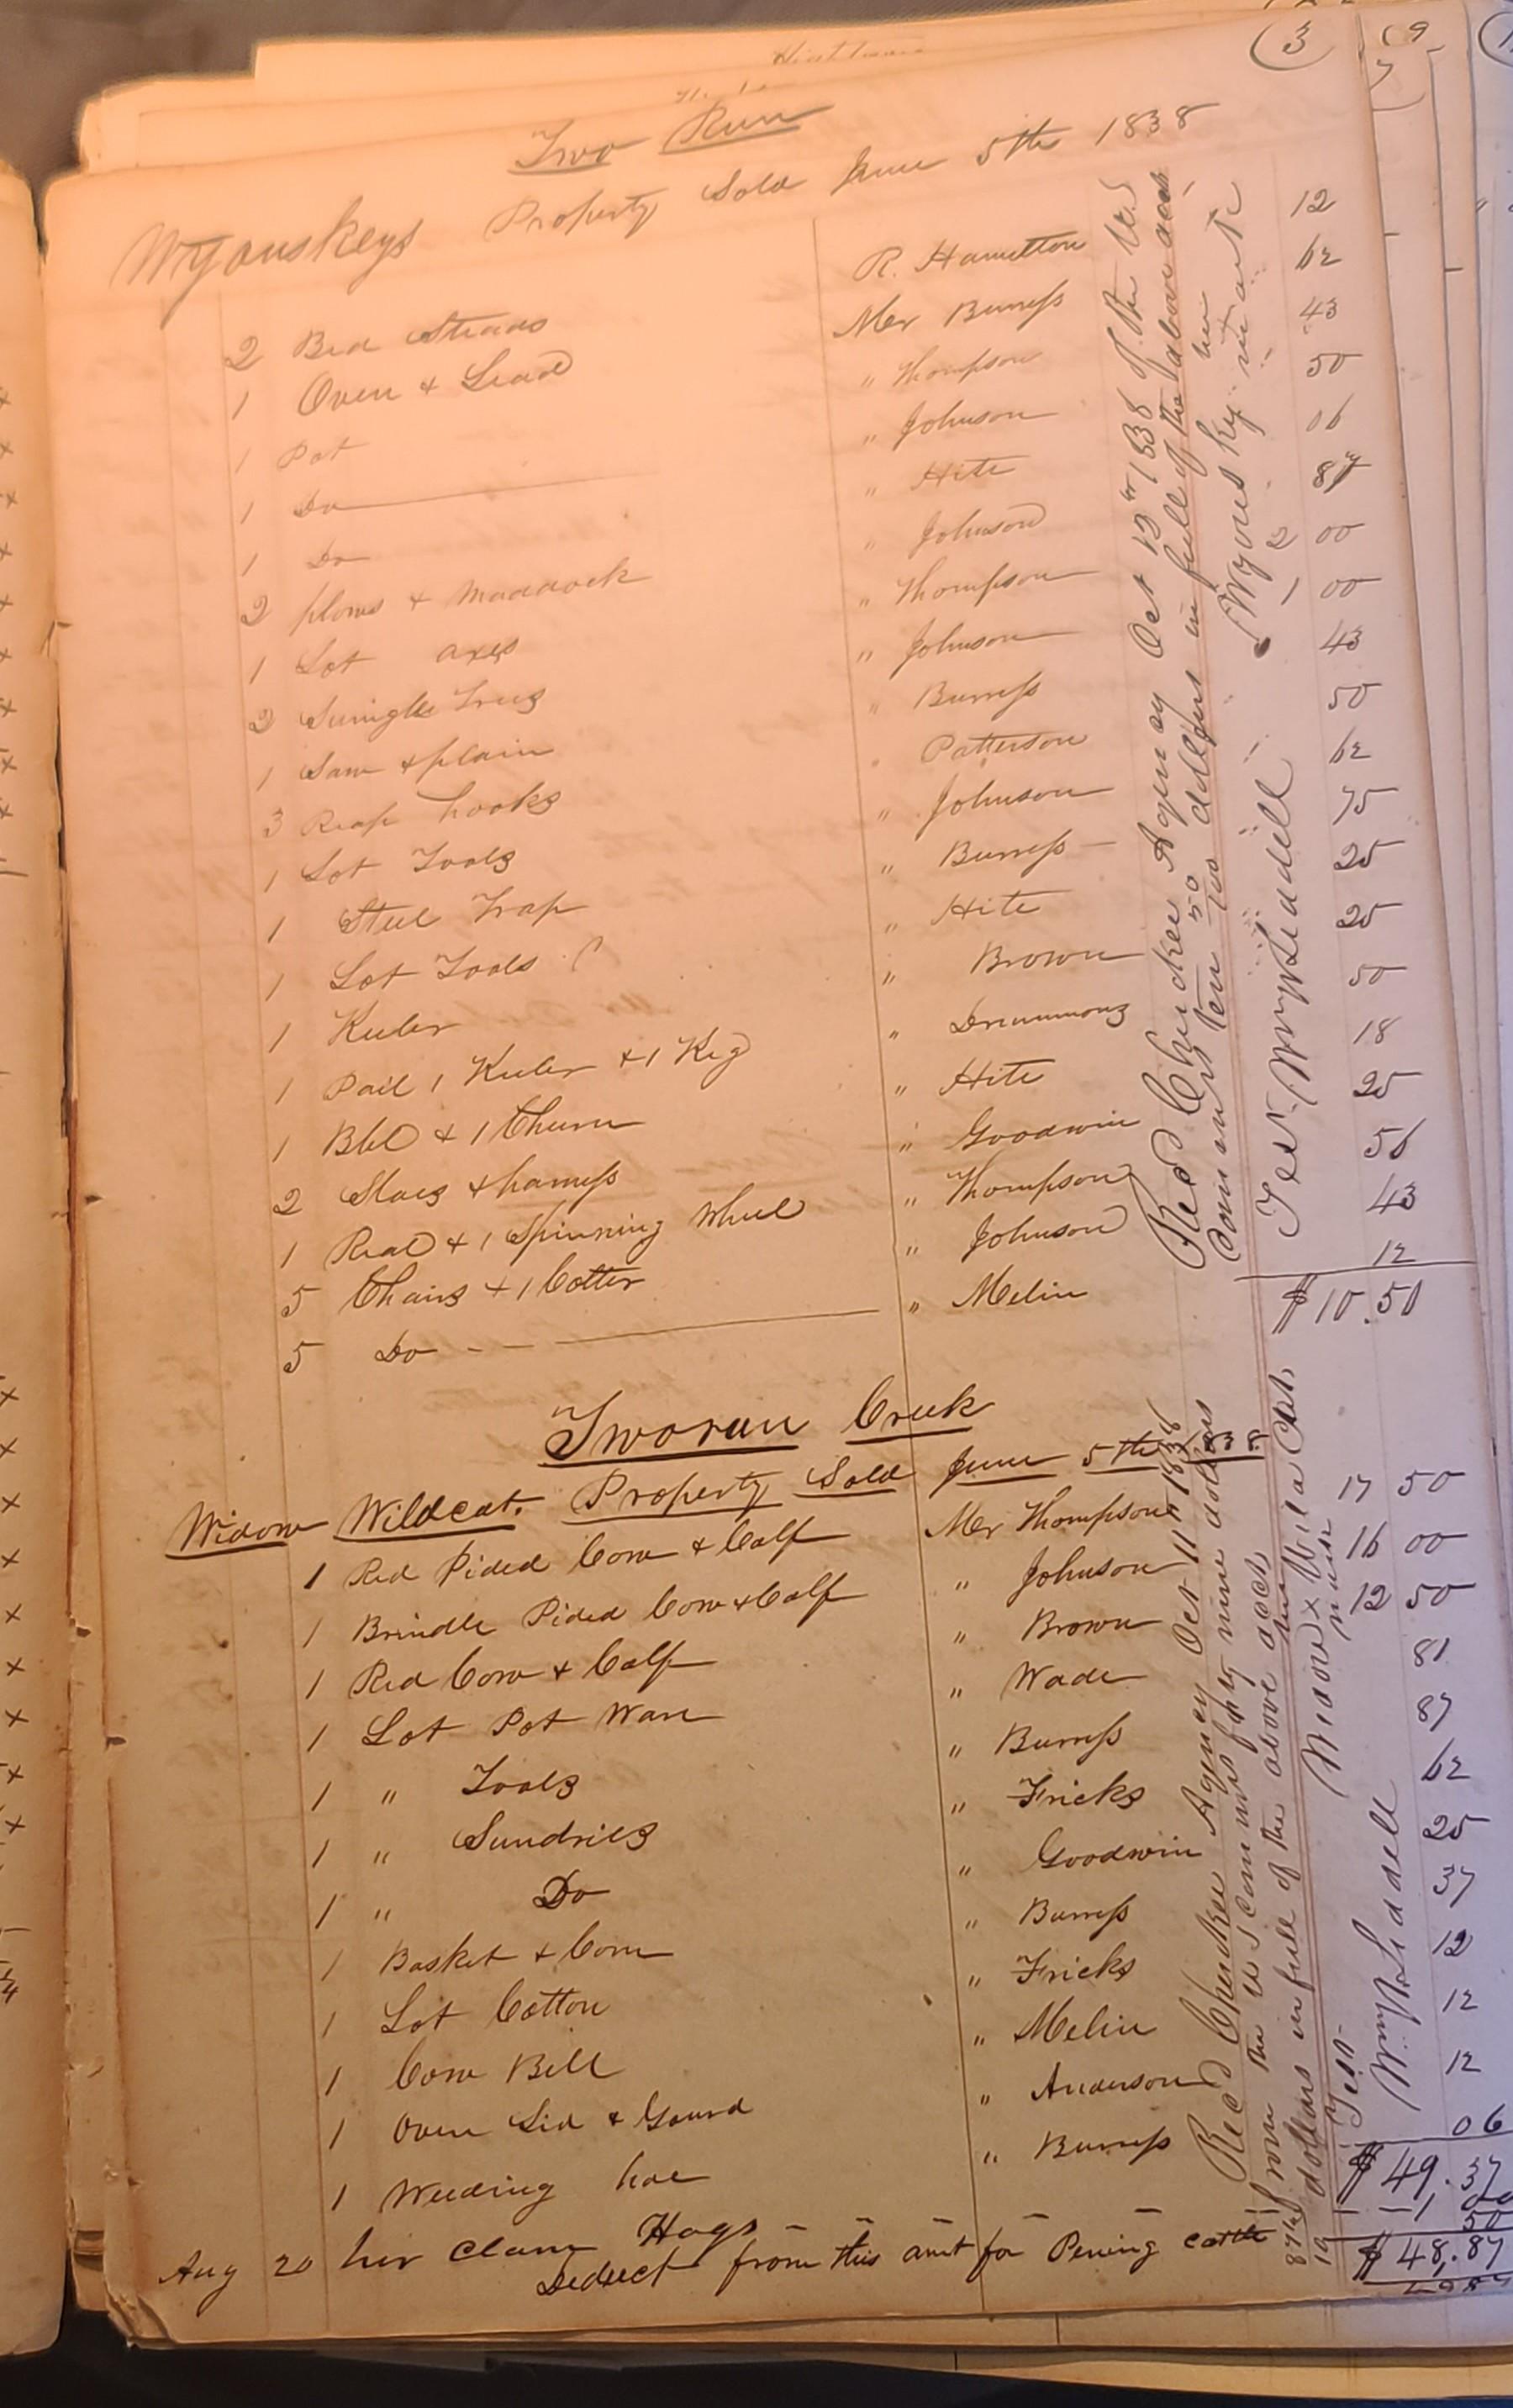 3
Two Run
Wyouskeys Property Sold June 5th 1838
2 Bed Steads R. Hamilton 12
1 Oven & Lead Mr Burress 62
1 Pot " Thompson 43
1 Do " Johnson 50
1 Do " Hite 06
2 plows & Maddock " Johnson 87
1 Lot axes " Thompson 2 00
2 Swingle Trees " Johnson 1 00
1 Saw & plain " Burress 43
3 Reap hooks " Patterson 50
1 Lot Tools " Johnson 62
1 Steel Trap " Burress 75
1 Lot Tools " Hite 25
1 Keeler " Brown 25
1 Pail 1 Keeler & 1 Keg " Drummons 50
1 Bbl & 1 Churn " Hite 18
2 Slaes & harness " Goodwin 25
1 Real & 1 Spinning Wheel " Thompson 56
5 Chairs & 1 Cotter " Johnson 43
5 Do " Melin 12
$10.50
Recd Cherokee Agency Oct 12th 1838 of the U.S
Commrs ten 50/100 dollars in full of the above acct
her
Wyousky x mark
Test Wm H Liddell
Tworun Creek
Widow Wildcat. Property Sold June 5th 1838
1 Red Pided Cow & Calf Mr Thompson 17 50
1 Brindle Pided Cow & Calf " Johnson 16 00
1 Red Cow & Calf " Brown 12 50
1 Lot Pot Ware " Wade 81
1 " Tools " Burress 87
1 " Sundries " Fricks 62
1 " Do " Goodwin 25
1 Basket & Corn " Burress 37
1 Lot Cotton " Fricks 12
1 Cow Bell " Melin 12
1 Oven Lid & Gourd " Anderson 12
1 Weeding hoe " Burress 06
$49.37
Aug 20 her Claim Hogs 1 00
Deduct from this amt for Pening cattle 50
$48.87
Recd Cherokee Agency Oct 11th 1838
from the U S Commrs forty nine dollars
dollars in full of the above acct
her
Widow x Wild Cat
mark
Test
Wm H Liddell